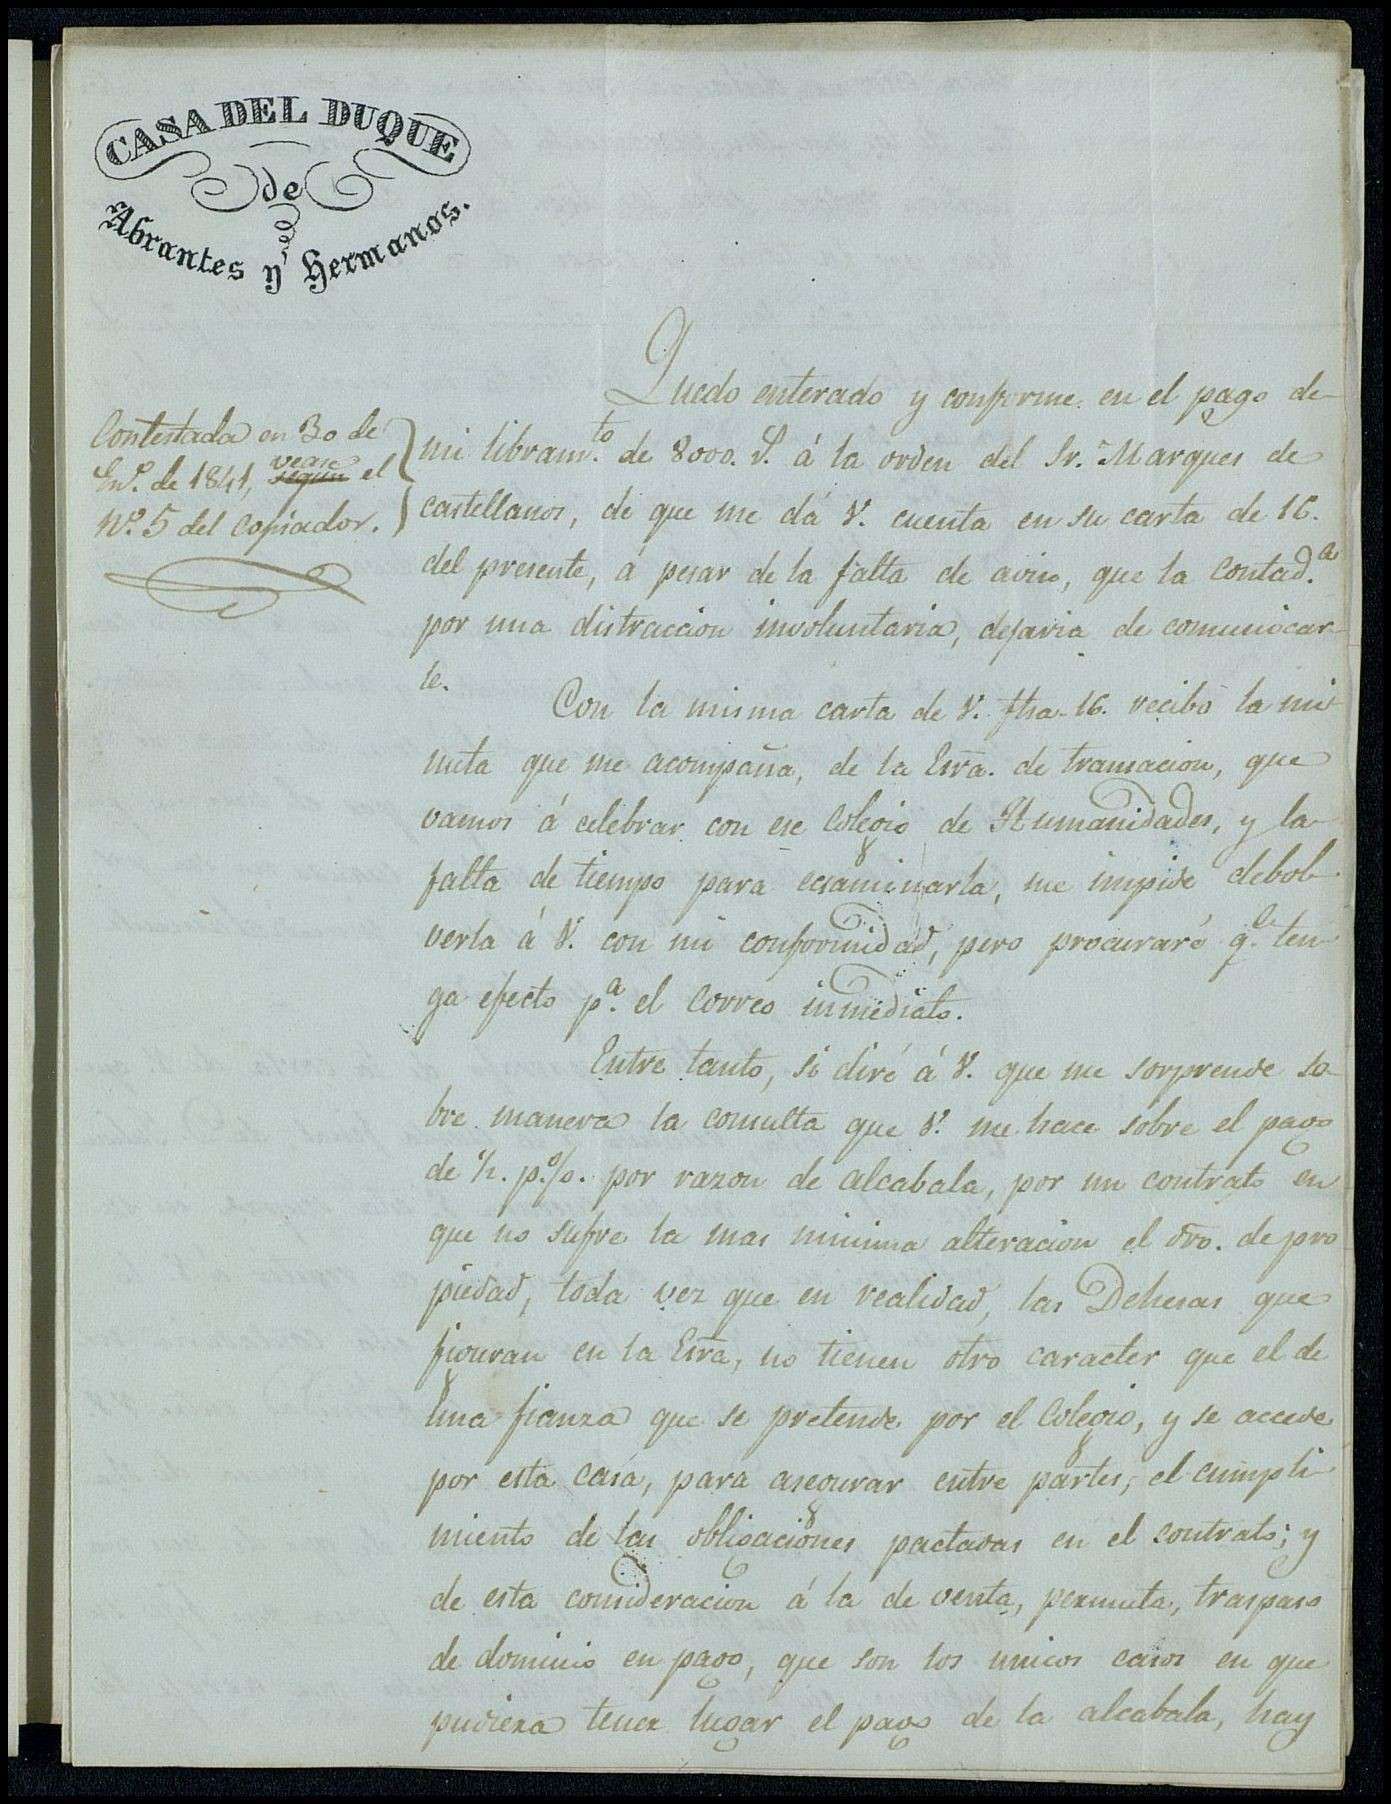 CASA DEL DUQUE
de
Abrantes y Hermanos.
Contestada en 30 de
En.º de 1841, vease según el
Nº. 5 del copiador.
Quedo enterado y conforme en el pago de
mi libram.to de 8000. r.s á la orden del Sr. Marques de
castellanos, de que me dá V. cuenta en su carta de 16.
del presente, á pesar de la falta de aviso, que la Contad.a
por una distraccion involuntaria, dejaria de comunicar-
le.
Con la misma carta de V. fha. 16. recibo la mi-
nuta que me acompaña, de la Esra. de transacion, que
vamos á celebrar con ese Colegio de Humanidades, y la
falta de tiempo para ecsaminarla, me impide debol-
verla á V. con mi conformidad, pero procuraré q.e ten-
ga efecto p.a el correo inmediato.
Entre tanto, si diré á V. que me sorprende so-
bre manera la consulta que V. me hace sobre el pago
de ½. p.%. por razon de alcabala, por un contrato en
que no sufre la mas minima alteracion el dro. de pro
piedad, toda vez que en realidad, las Dehesas que
figuran en la Esra, no tienen otro caracter que el de
una fianza que se pretende por el Colegio, y se accede
por esta casa, para asegurar entre partes, el cumpli-
miento de las obligaciones pactadas en el contrato; y
de esta consideracion á la de venta, permuta, traspaso
de dominio en pago, que son los unicos casos en que
pudiera tener lugar el pago de la alcabala, hay